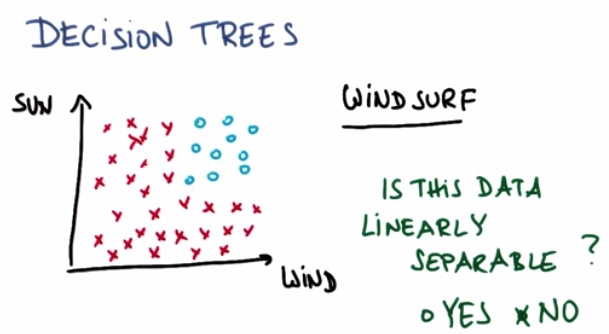 DECISION TREES
SUN
WINDSURF
IS THIS DATA
LINEARLY
SEPARABLE ?
WIND
YES NO